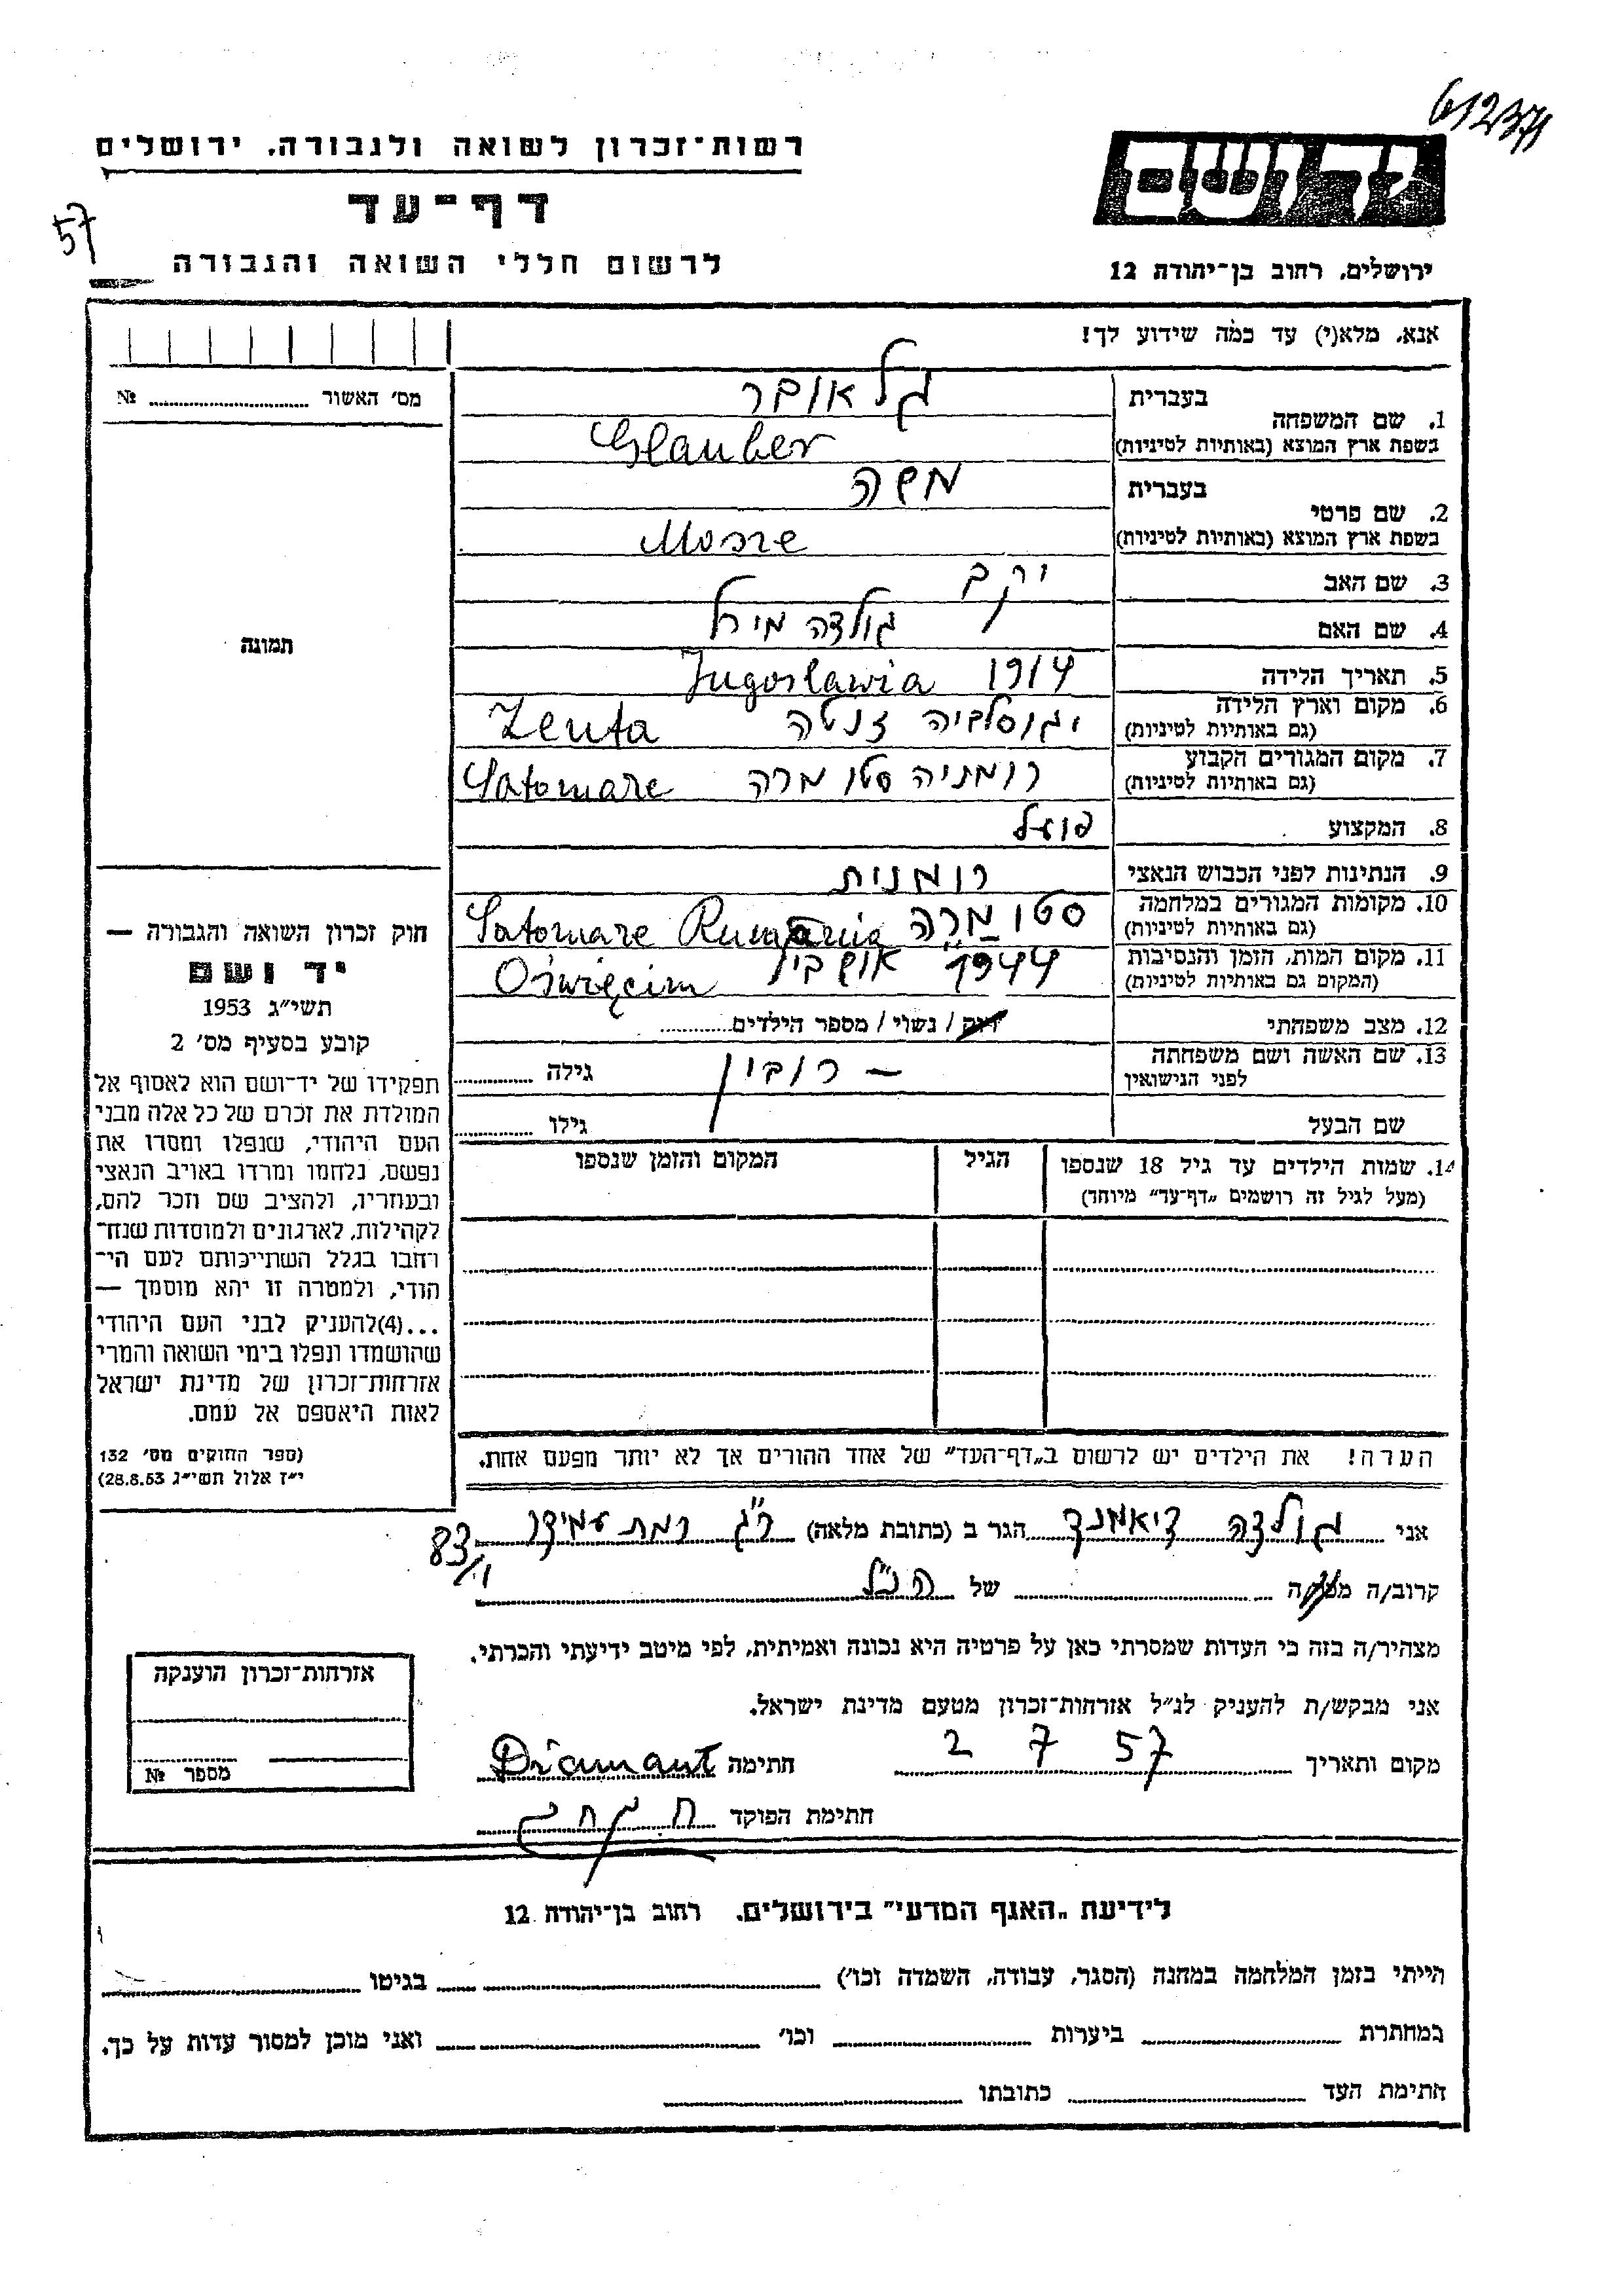 61237
רשות־זכרון לשואה ולגבורה, ירושלים
יד ושם
דף־עד
57
לרשום חללי השואה והגבורה
ירושלים, רחוב בן־יהודה 12
אנא, מלא(י) עד כמה שידוע לך!
מס׳ האשור № 
1. שם המשפחה בעברית גלאובר
בשפת ארץ המוצא (באותיות לטיניות) Glauber
2. שם פרטי בעברית משה
בשפת ארץ המוצא (באותיות לטיניות)
3. שם האב
4. שם האם גולדה מירל
5. תאריך הלידה 1914 Jugoslawia
6. מקום וארץ הלידה (גם באותיות לטיניות) יגוסלביה זנטה Zenta
7. מקום המגורים הקבוע (גם באותיות לטיניות) רומניה סטו מרה Satomare
8. המקצוע פועל
9. הנתינות לפני הכבוש הנאצי רומנית
10. מקומות המגורים במלחמה (גם באותיות לטיניות) סטו מרה Satomare Rumania
11. מקום המות, הזמן והנסיבות (המקום גם באותיות לטיניות) 1944 Oświęcim
12. מצב משפחתי רווק / נשוי / מספר הילדים
13. שם האשה ושם משפחתה לפני הנישואין – רובין גילה
שם הבעל גילו
14. שמות הילדים עד גיל 18 שנספו הגיל המקום והזמן שנספו
(מעל לגיל זה רושמים „דף־עד״ מיוחד)
הערה! את הילדים יש לרשום ב„דף־העד״ של אחד ההורים אך לא יותר מפעם אחת.
תמונה
חוק זכרון השואה והגבורה —
יד ושם
תשי״ג 1953
קובע בסעיף מס׳ 2
תפקידו של יד־ושם הוא לאסוף אל
המולדת את זכרם של כל אלה מבני
העם היהודי, שנפלו ומסרו את
נפשם, נלחמו ומרדו באויב הנאצי
ובעוזריו, ולהציב שם וזכר להם,
לקהילות, לארגונים ולמוסדות שנח־
רחבו בגלל השתייכותם לעם הי־
הודי, ולמטרה זו יהא מוסמך —
...(4)להעניק לבני העם היהודי
שהושמדו ונפלו בימי השואה והמרי
אזרחות־זכרון של מדינת ישראל
לאות היאספם אל עמם.
(ספר החוקים מס׳ 132
י״ז אלול תשי״ג 28.8.53)
אני גולדה דיאמנד הגר ב (כתובת מלאה) ר״ג רמת עמידר
83/
קרוב/ה מכר/ה של הנ״ל
מצהיר/ה בזה כי העדות שמסרתי כאן על פרטיה היא נכונה ואמיתית, לפי מיטב ידיעתי והכרתי.
אני מבקש/ת להעניק לנ״ל אזרחות־זכרון מטעם מדינת ישראל.
מקום ותאריך 2 7 57 חתימה Diamant
חתימת הפוקד
אזרחות־זכרון הוענקה
מספר №
לידיעת „האגף המדעי״ בירושלים, רחוב בן־יהודה 12
הייתי בזמן המלחמה במחנה (הסגר, עבודה, השמדה וכו׳) בגיטו
במחתרת ביערות וכו׳ ואני מוכן למסור עדות על כך.
חתימת העד כתובתו